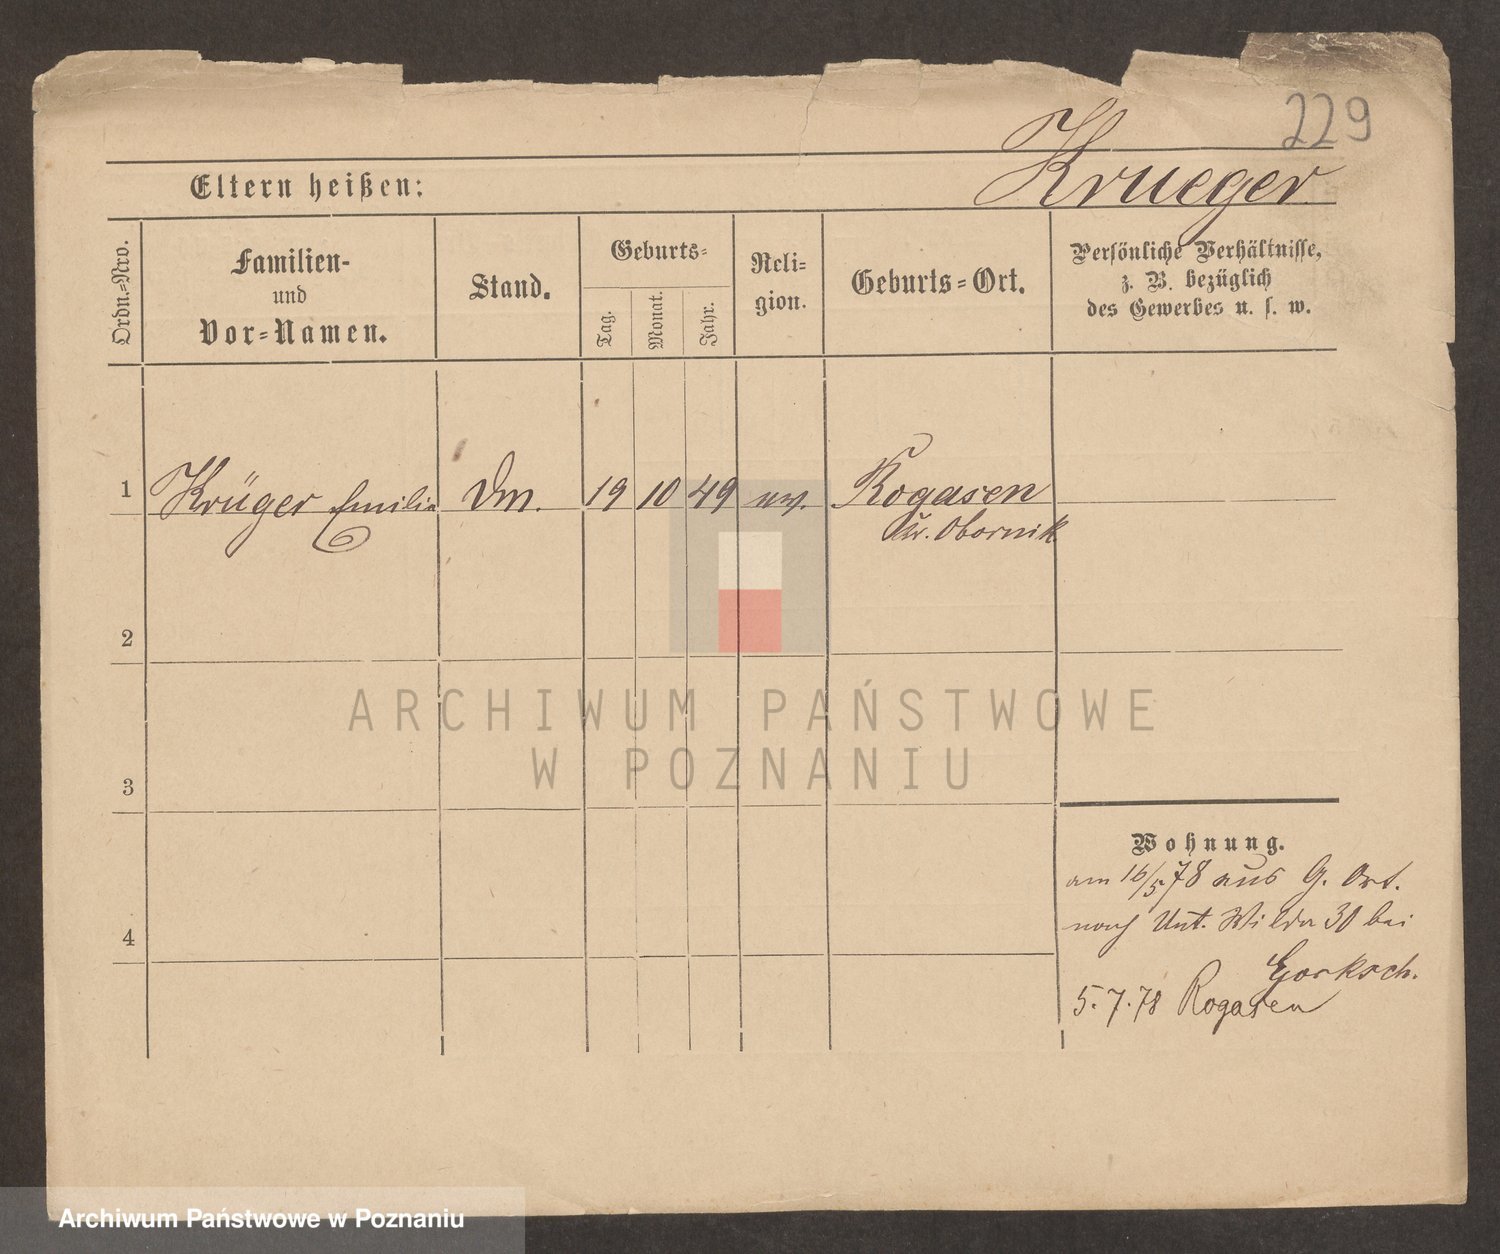 229
Krueger
Eltern heißen:
Ordn.=Nro.
Familien-
und
Vor=Namen.
Stand.
Geburts=
Tag.
Monat.
Jahr.
Reli=
gion.
Geburts=Ort.
Persönliche Verhältnisse,
z. B. bezüglich
des Gewerbes u. s. w.
1 Krüger Emilie 19 10 49 Rogasen
Obornik
2
3
4
Wohnung.
am 16/5 78 aus G. Ort.
nach Unt. Wilda 30 bei
5.7.78 Rogasen
ARCHIWUM PAŃSTWOWE
W POZNANIU
Archiwum Państwowe w Poznaniu